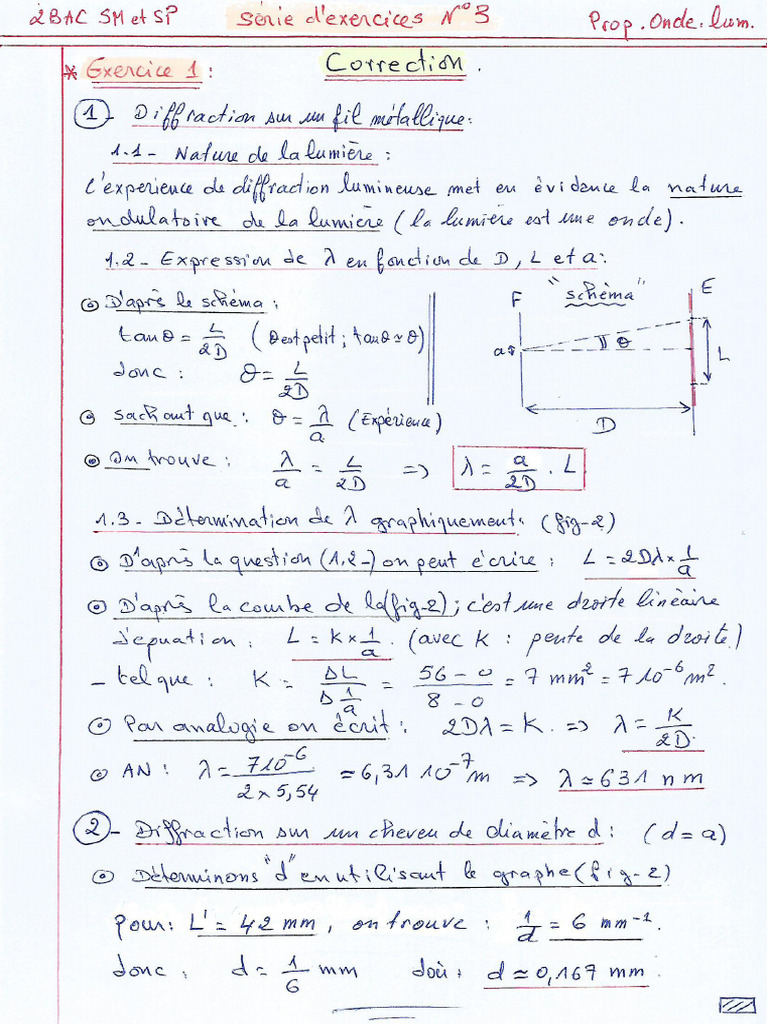 2BAC SM et SP Série d'exercices N° 3 Prop. Onde. lum.
* Exercice 1 : Correction.
1 - Diffraction sur un fil métallique :
1.1 - Nature de la lumière :
L'expérience de diffraction lumineuse met en évidence la nature
ondulatoire de la lumière (la lumière est une onde).
1.2 - Expression de λ en fonction de D, L et a :
D'après le schéma :
tanθ = L/2D (θ est petit ; tanθ ≈ θ)
donc : θ = L/2D
"schéma"
F E
a θ L
D
Sachant que : θ = λ/a (Expérience)
On trouve : λ/a = L/2D => λ = a/2D . L
1.3 - Détermination de λ graphiquement. (fig-2)
D'après la question (1.2-) on peut écrire : L = 2Dλ × 1/a
D'après la courbe de la (fig-2) ; c'est une droite linéaire
d'équation : L = K × 1/a (avec K : pente de la droite)
- tel que : K = ΔL/Δ1/a = 56 - 0/8 - 0 = 7 mm² = 7 10⁻⁶ m².
Par analogie on écrit : 2Dλ = K. => λ = K/2D.
AN : λ = 7 10⁻⁶/2 × 5,54 ≈ 6,31 10⁻⁷ m => λ ≈ 631 nm
2 - Diffraction sur un cheveu de diamètre d : (d = a)
Déterminons "d" en utilisant le graphe (fig-2)
pour : L' = 42 mm, on trouve : 1/d = 6 mm⁻¹.
donc : d = 1/6 mm doù : d ≈ 0,167 mm.